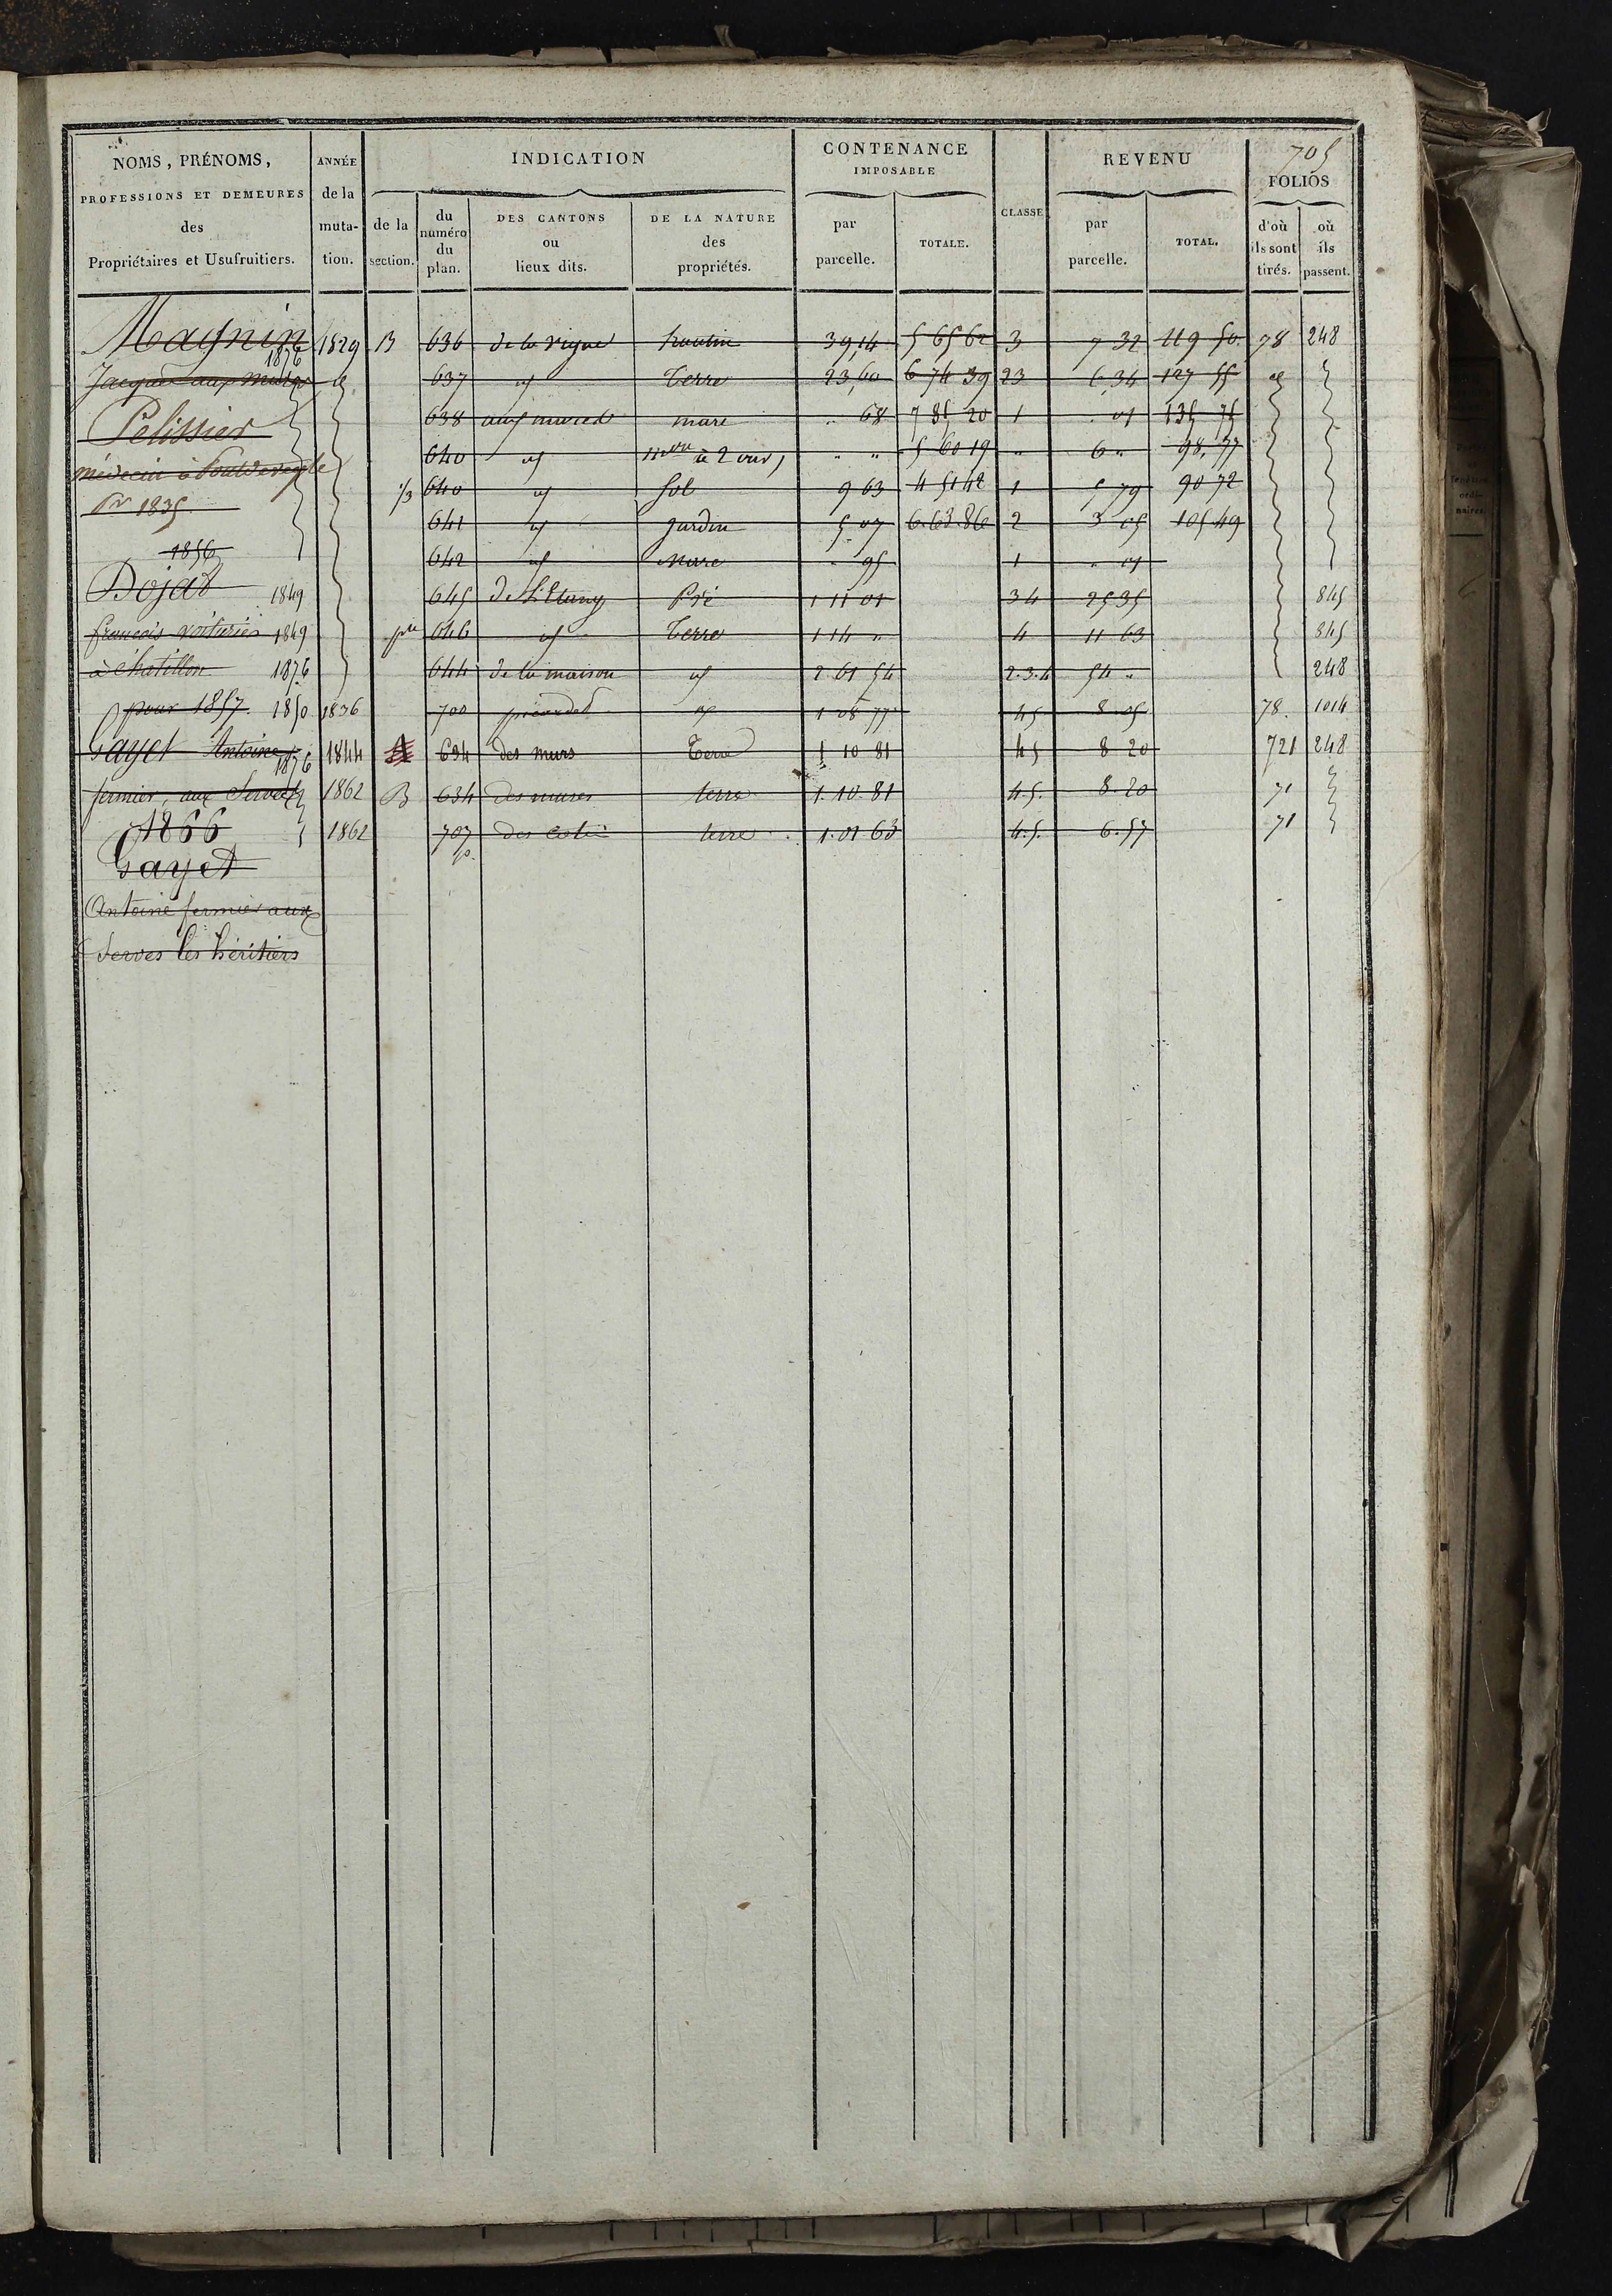 705
NOMS, PRÉNOMS, ANNÉE INDICATION CONTENANCE REVENU FOLIOS
PROFESSIONS ET DEMEURES de la IMPOSABLE
des muta- de la du DES CANTONS DE LA NATURE par TOTALE. CLASSE par TOTAL. d'où où
Propriétaires et Usufruitiers. tion. section. numéro du plan. ou lieux dits. des propriétés. parcelle. parcelle. ils sont tirés. ils passent.
Magnin 1876 1829 B 636 de la vigne hautin 39,14 5 65 62 3 7 32 119 50 78 248
Jacques aux mures 637 Terre 23,60 6 74 39 23 6 34 127 55
Pelissier 638 aux mures mare .. 68 7 85 20 1 . 01 135 75
médecin à 640 mon à 2 ouv, " " 5 60 19 " 6 " 98,77
pr 1835 1/3 640 Sol 9 63 4 51 42 1 5 79 90 72
641 Jardin 5,07 6.63.86 2 3 05 105.49
1856 642 Mare . 95 1 . 01
Dojat 1849 645 de l'Etang Pré 1 11 01 34 25 35 845
françois voiturier 1849 pie 646 Terre 1 14 " 4 11 63 845
à chatillon 1876 644 de la maison 2 61 54 2.3.4 54 " 248
pour 1857. 1850 1836 700 1 08 77 45 8.05 78. 1014
Gayet Antoine 1876 1844 634 des murs Terre 1 10 81 45 8 20 721 248
fermier, aux Serves 1862 B 634 des mures terre 1.10.81 4.5. 8.20 71
1866 1862 707 terre 1.01 63 4.5. 6.57 71
Gayet
Antoine fermier aux
Serves les héritiers